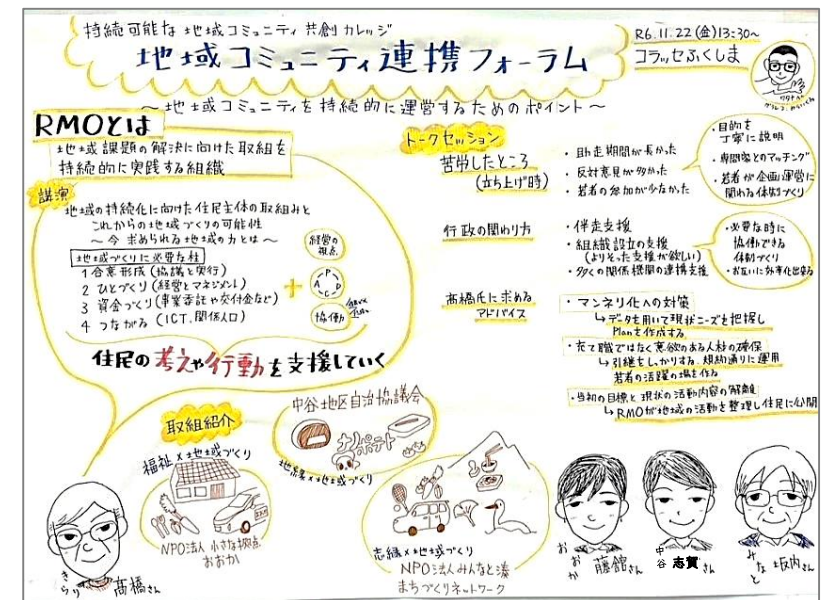 持続可能な地域コミュニティ共創カレッジ
地域コミュニティ連携フォーラム
R6.11.22(金)13:30~
コラッセふくしま
~地域コミュニティを持続的に運営するためのポイント~
RMOとは
地域課題の解決に向けた取組を
持続的に実践する組織
講演
地域の持続化に向けた住民主体の取組みと
これからの地域づくりの可能性
~今求められる地域の力とは~
地域づくりに必要な柱
1 合意形成(協議と実行)
2 ひとづくり(経営とマネジメント)
3 資金づくり(事業委託や交付金など)
4 つながる(ICT、関係人口)
+
経営の
視点
P
D
C
A
協働
住民の考えや行動を支援していく
トークセッション
苦労したところ
(立ち上げ時)
・助走期間が長かった
・反対意見が多かった
・若者の参加が少なかった
・目的を
丁寧に説明
・専門家とのマッチング
・若者が企画運営に
関わる体制づくり
行政の関わり方
・伴走支援
・組織設立の支援
(よりそった支援が欲しい)
・多くの関係機関の連携支援
・必要な時に
協働できる
体制づくり
・お互いに効率化出来る
髙橋氏に求める
アドバイス
・マンネリ化への対策
↳データを用いて現状ニーズを把握し
Planを作成する
・充て職ではなく意欲のある人材の確保
↳引継をしっかりする、規約通りに運用
若者の活躍の場を作る
・当初の目標と現状の活動内容の解離
↳RMOが地域の活動を整理し住民に公開
取組紹介
福祉×地域づくり
NPO法人 小さな拠点
おおか
中谷地区自治協議会
ナノポテト
地縁×地域づくり
志縁×地域づくり
NPO法人みんなと湊
まちづくりネットワーク
きらり
髙橋さん
おおか
藤舘さん
中谷
志賀さん
みなと
坂内さん